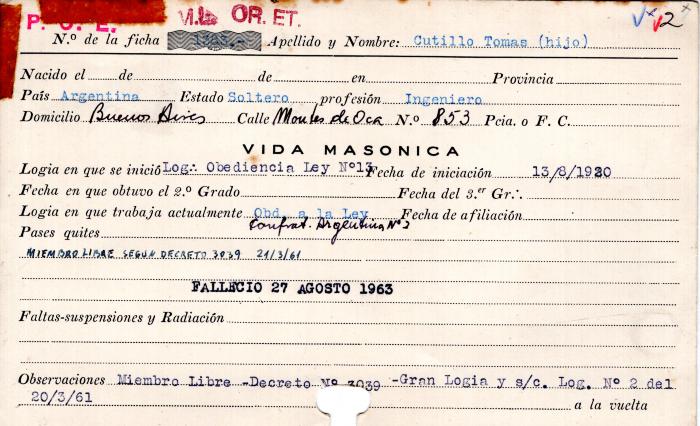 P. O. E. M.L. OR. ET. 2
N.º de la ficha Apellido y Nombre: Cutillo Tomas (hijo)
Nacido el de de en Provincia
País Argentina Estado Soltero profesión Ingeniero
Domicilio Buenos Aires Calle Montes de Oca N.º 853 Pcia. o F. C.
VIDA MASONICA
Logia en que se inició Log∴ Obediencia Ley Nº13 Fecha de iniciación 13/8/1920
Fecha en que obtuvo el 2.º Grado Fecha del 3.er Gr∴
Logia en que trabaja actualmente Obd. a la Ley Fecha de afiliación
Pases quites Confrat. Argentina Nº 2
MIEMBRO LIBRE SEGUN DECRETO 3039 21/3/61
FALLECIO 27 AGOSTO 1963
Faltas-suspensiones y Radiación
Observaciones Miembro Libre -Decreto Nº 3039 -Gran Logia y s/c. Log. Nº 2 del
20/3/61 a la vuelta